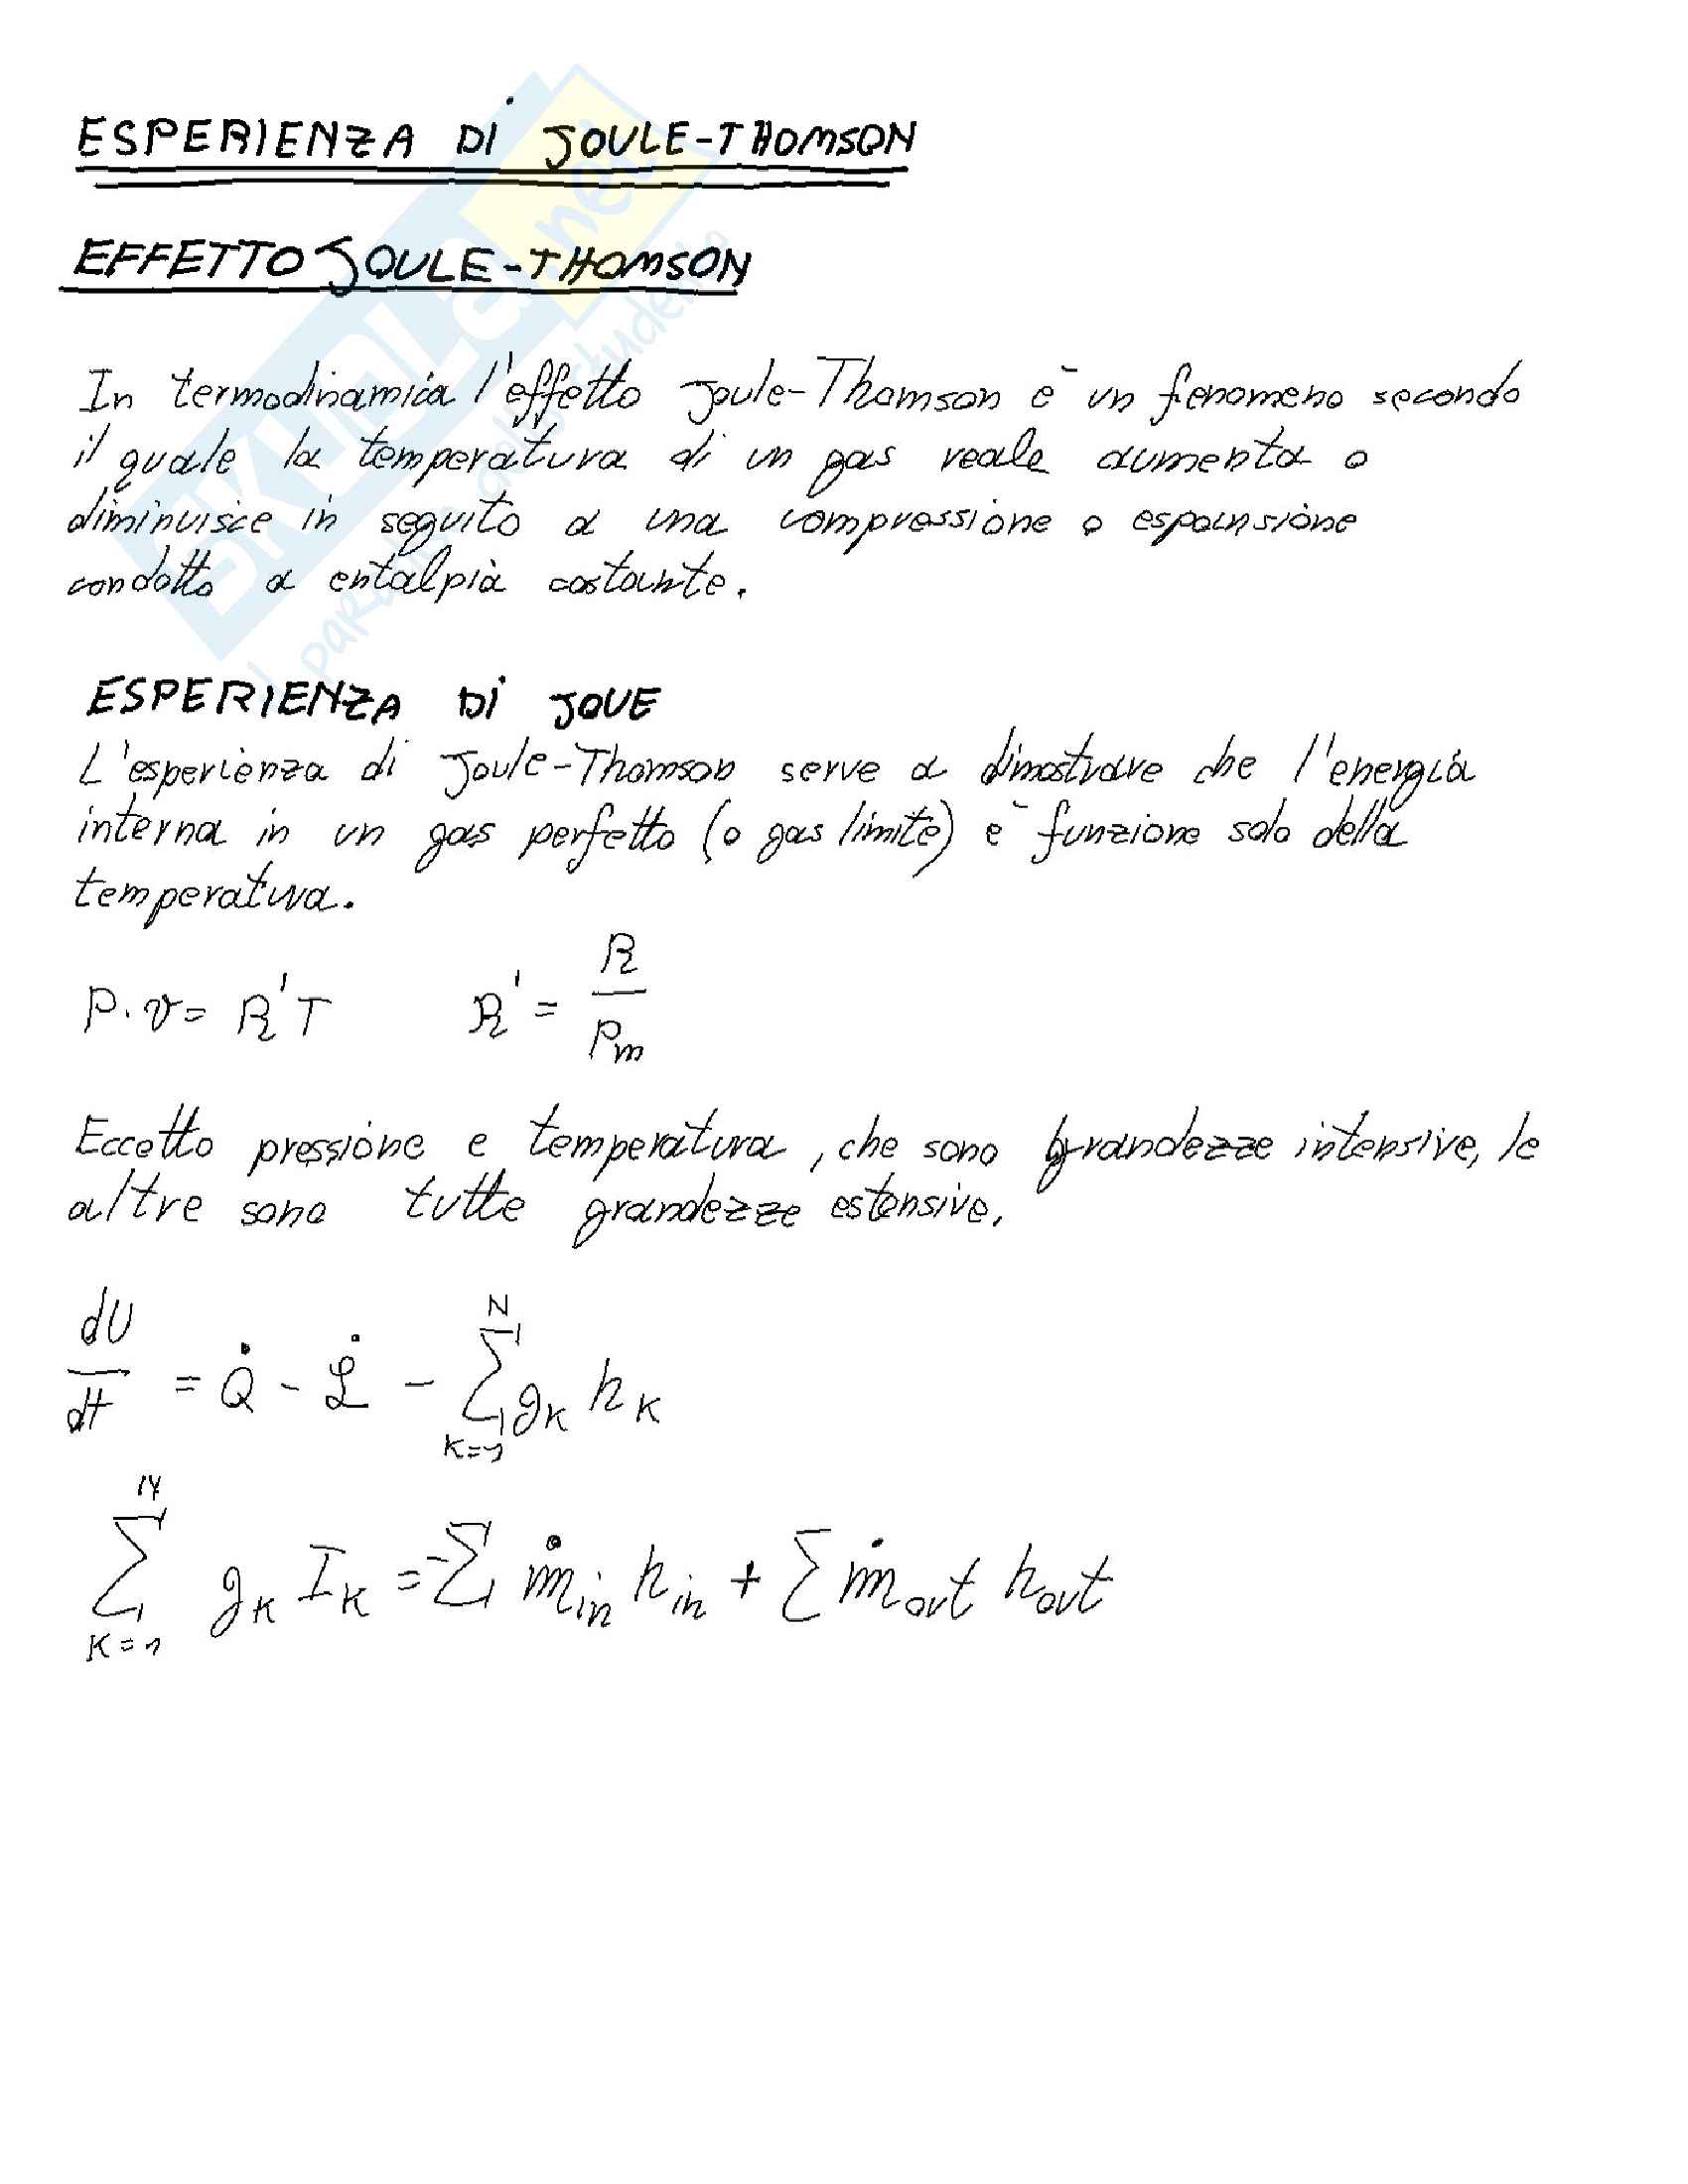 ESPERIENZA Di JOULE-THOMSON
EFFETTO JOULE-THOMSON
In termodinamica l'effetto Joule-Thomson è un fenomeno secondo
il quale la temperatura di un gas reale aumenta o
diminuisce in seguito a una compressione o espansione
condotto a entalpia costante.
ESPERIENZA Di JOUE
L'esperienza di Joule-Thomson serve a dimostrare che l'energia
interna in un gas perfetto (o gas limite) è funzione solo della
temperatura.
P·v = R'T R' = R / Pm
Eccetto pressione e temperatura, che sono grandezze intensive, le
altre sono tutte grandezze estensive.
dU/dt = Q̇ - L̇ - Σ_{K=1}^{N} g_K h_K
Σ_{K=1}^{N} g_K I_K = -Σ ṁ_in h_in + Σ ṁ_out h_out
SKUOLA.net